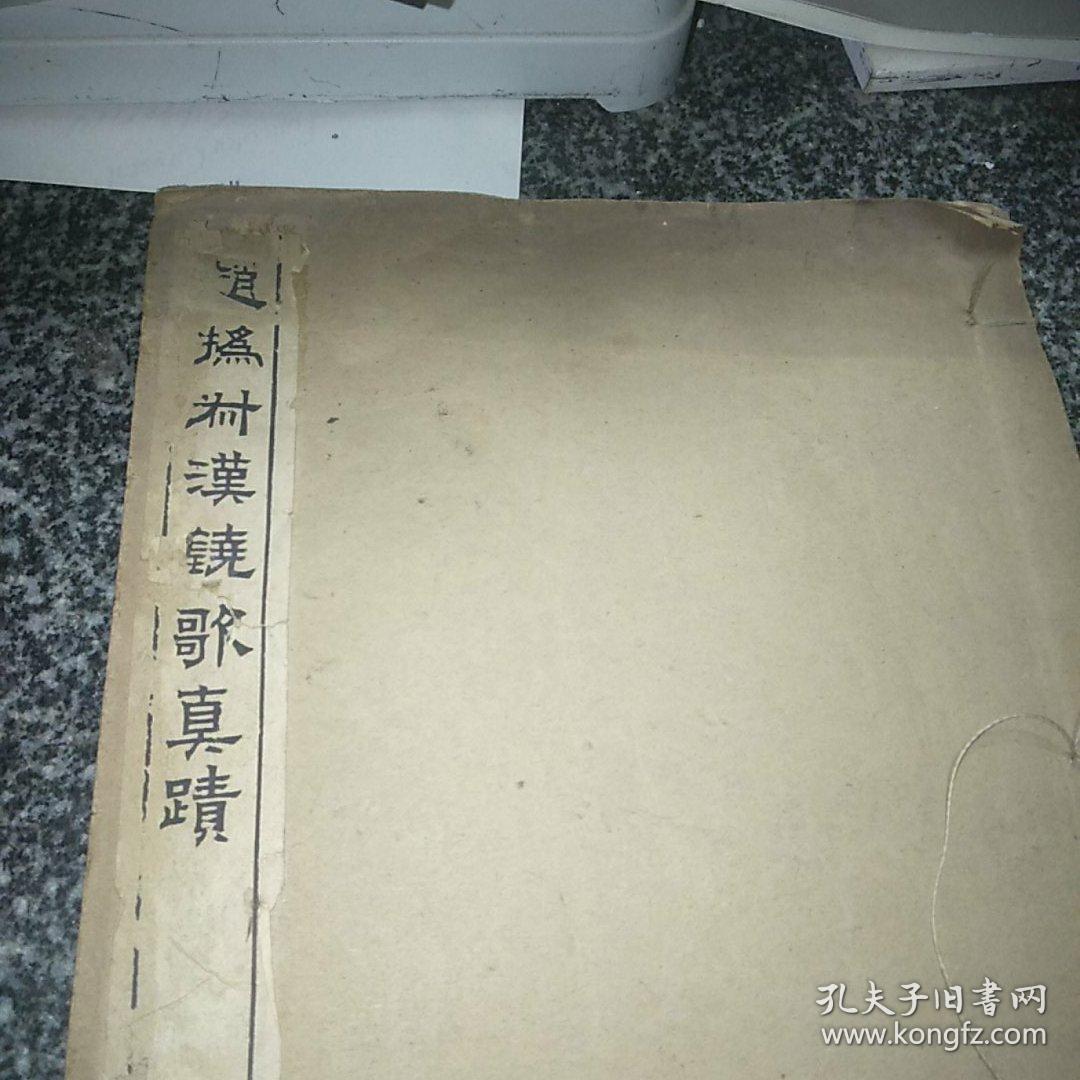 趙撝叔漢鐃歌真蹟
孔夫子旧書网
www.kongfz.com